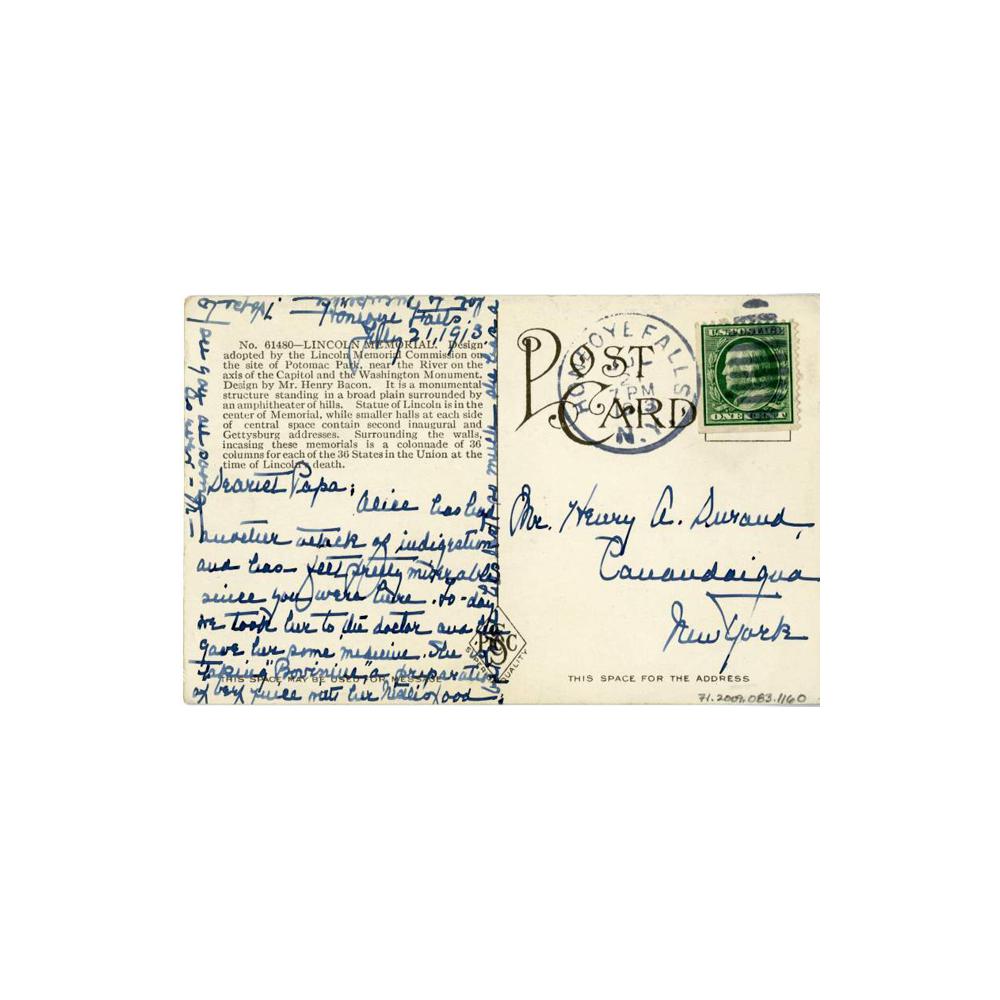 Honeoye Falls.
July 21, 1913.
No. 61480—LINCOLN MEMORIAL. Design
adopted by the Lincoln Memorial Commission on
the site of Potomac Park, near the River on the
axis of the Capitol and the Washington Monument.
Design by Mr. Henry Bacon. It is a monumental
structure standing in a broad plain surrounded by
an amphitheater of hills. Statue of Lincoln is in the
center of Memorial, while smaller halls at each side
of central space contain second inaugural and
Gettysburg addresses. Surrounding the walls,
incasing these memorials is a colonnade of 36
columns for each of the 36 States in the Union at the
time of Lincoln's death.
Dearest Papa;
Alice has had
another attack of indigestion
and has felt pretty miserable
since you were here. To-day
we took her to the doctor and he
gave her some medicine. She is
taking "Bovinine" a preparation
of beef juice with her food
THIS SPACE MAY BE USED FOR MESSAGE
but is not so well she has a
hot temperature
Hope to
see you all soon
POST CARD
HONEOYE FALLS
7 PM
N.Y.
U.S. POSTAGE
ONE CENT
Mr. Henry A. Durand,
Canandaigua
New York
SUPERIOR QUALITY
THIS SPACE FOR THE ADDRESS
71.2009.083.1160